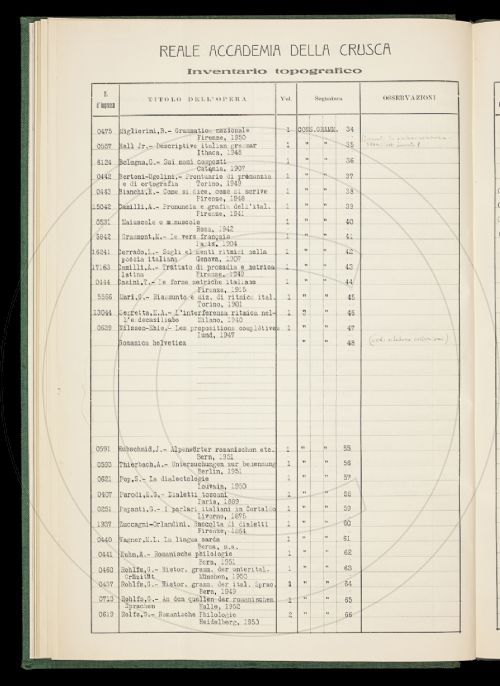 REALE ACCADEMIA DELLA CRUSCA
Inventario topografico
N. d'ingresso TITOLO DELL'OPERA Vol. Segnatura OSSERVAZIONI
0475 Migliorini,B.- Grammatica nazionale 1 CONS.GRAMM. 34
Firenze, 1950
0557 Hall Jr.- Descriptive italian grammar 1 " " 35
Ithaca, 1948
8124 Bologna,G.- Sui nomi composti 1 " " 36
Catania, 1907
0442 Bertoni-Ugolini,- Prontuario di pronunzia 1 " " 37
e di ortografia Torino, 1949
0443 Bianchi,E.- Come si dice, come si scrive 1 " " 38
Firenze, 1948
15042 Camilli,A.- Pronuncia e grafia dell'ital. 1 " " 39
Firenze, 1941
0531 Maiuscole e minuscole 1 " " 40
Roma, 1942
Grammont,M.- Le vers français 1 " " 41
Paris, 1904
Serrado,L.- Sugli elementi ritmici nella 1 " " 42
poesia italiana Genova, 1907
17163 Camilli,A.- Trattato di prosodia e metrica 1 " " 43
latina Firenze, 1949
0444 Casini,T.- Le forme metriche italiane 1 " " 44
Firenze, 1915
5566 Mari,G.- Riassunto e diz. di ritmica ital. 1 " " 45
Torino, 1901
13044 Segretta,M.A.- L'interferenza ritmica nel- 1 " " 46
l'e decasillabo Milano, 1940
0639 Nilsson-Ehle,- Les propositions complétives 1 " " 47
Lund, 1947
Romanica helvetica " " 48
0591 Hubschmid,J.- Alpenwörter romanischen etc. 1 " " 55
Bern, 1951
0593 Thierbach,A.- Untersuchungen zur benennung 1 " " 56
Berlin, 1951
0621 Pop,S.- La dialectologie 1 " " 57
Louvain, 1950
0407 Parodi,E.G.- Dialetti toscani 1 " " 58
Paris, 1889
0251 Papanti,G.- I parlari italiani in Certaldo 1 " " 59
Livorno, 1875
1937 Zuccagni-Orlandini. Raccolta di dialetti 1 " " 60
Firenze, 1864
0440 Wagner,M.L. La lingua sarda 1 " " 61
Berna, s.a.
0441 Kuhn,A.- Romanische philologie 1 " " 62
Bern, 1951
0460 Rohlfs,G.- Histor. gramm. der unterital. 1 " " 63
Gräzität München, 1950
0437 Rohlfs,G.- Histor. gramm. der ital. Sprac. 3 " " 64
Bern, 1949
0713 Rohlfs,G.- An den quellen der romanischen 1 " " 65
Sprachen Halle, 1952
0619 Rolfs,G.- Romanische Philologie 2 " " 66
Heidelberg, 1950